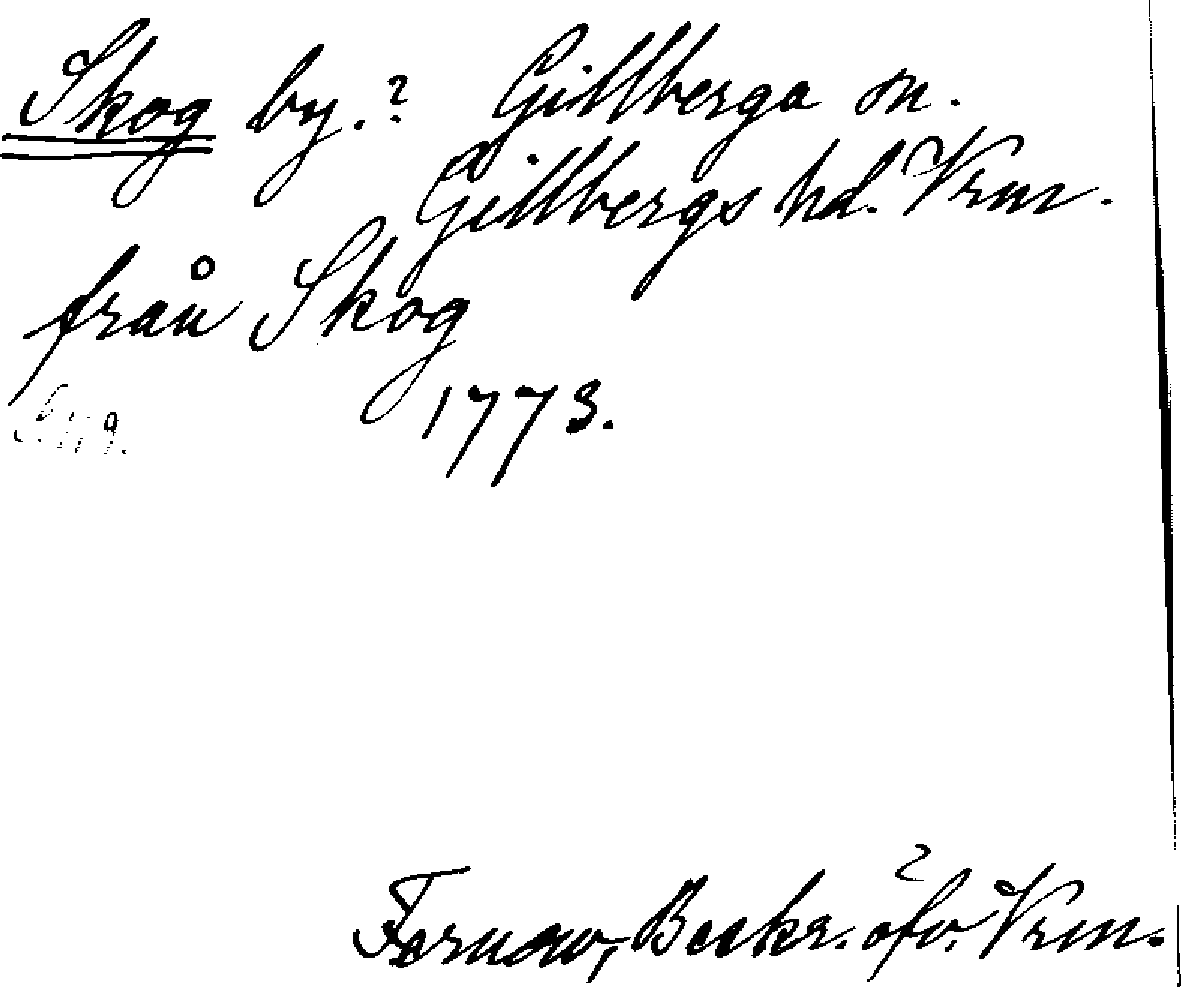 Skog by.? Gillberga sn.
Gillbergs hd. Vrm.
från Skog
1773.
Fernow, Beskr. öfv. Vrm.